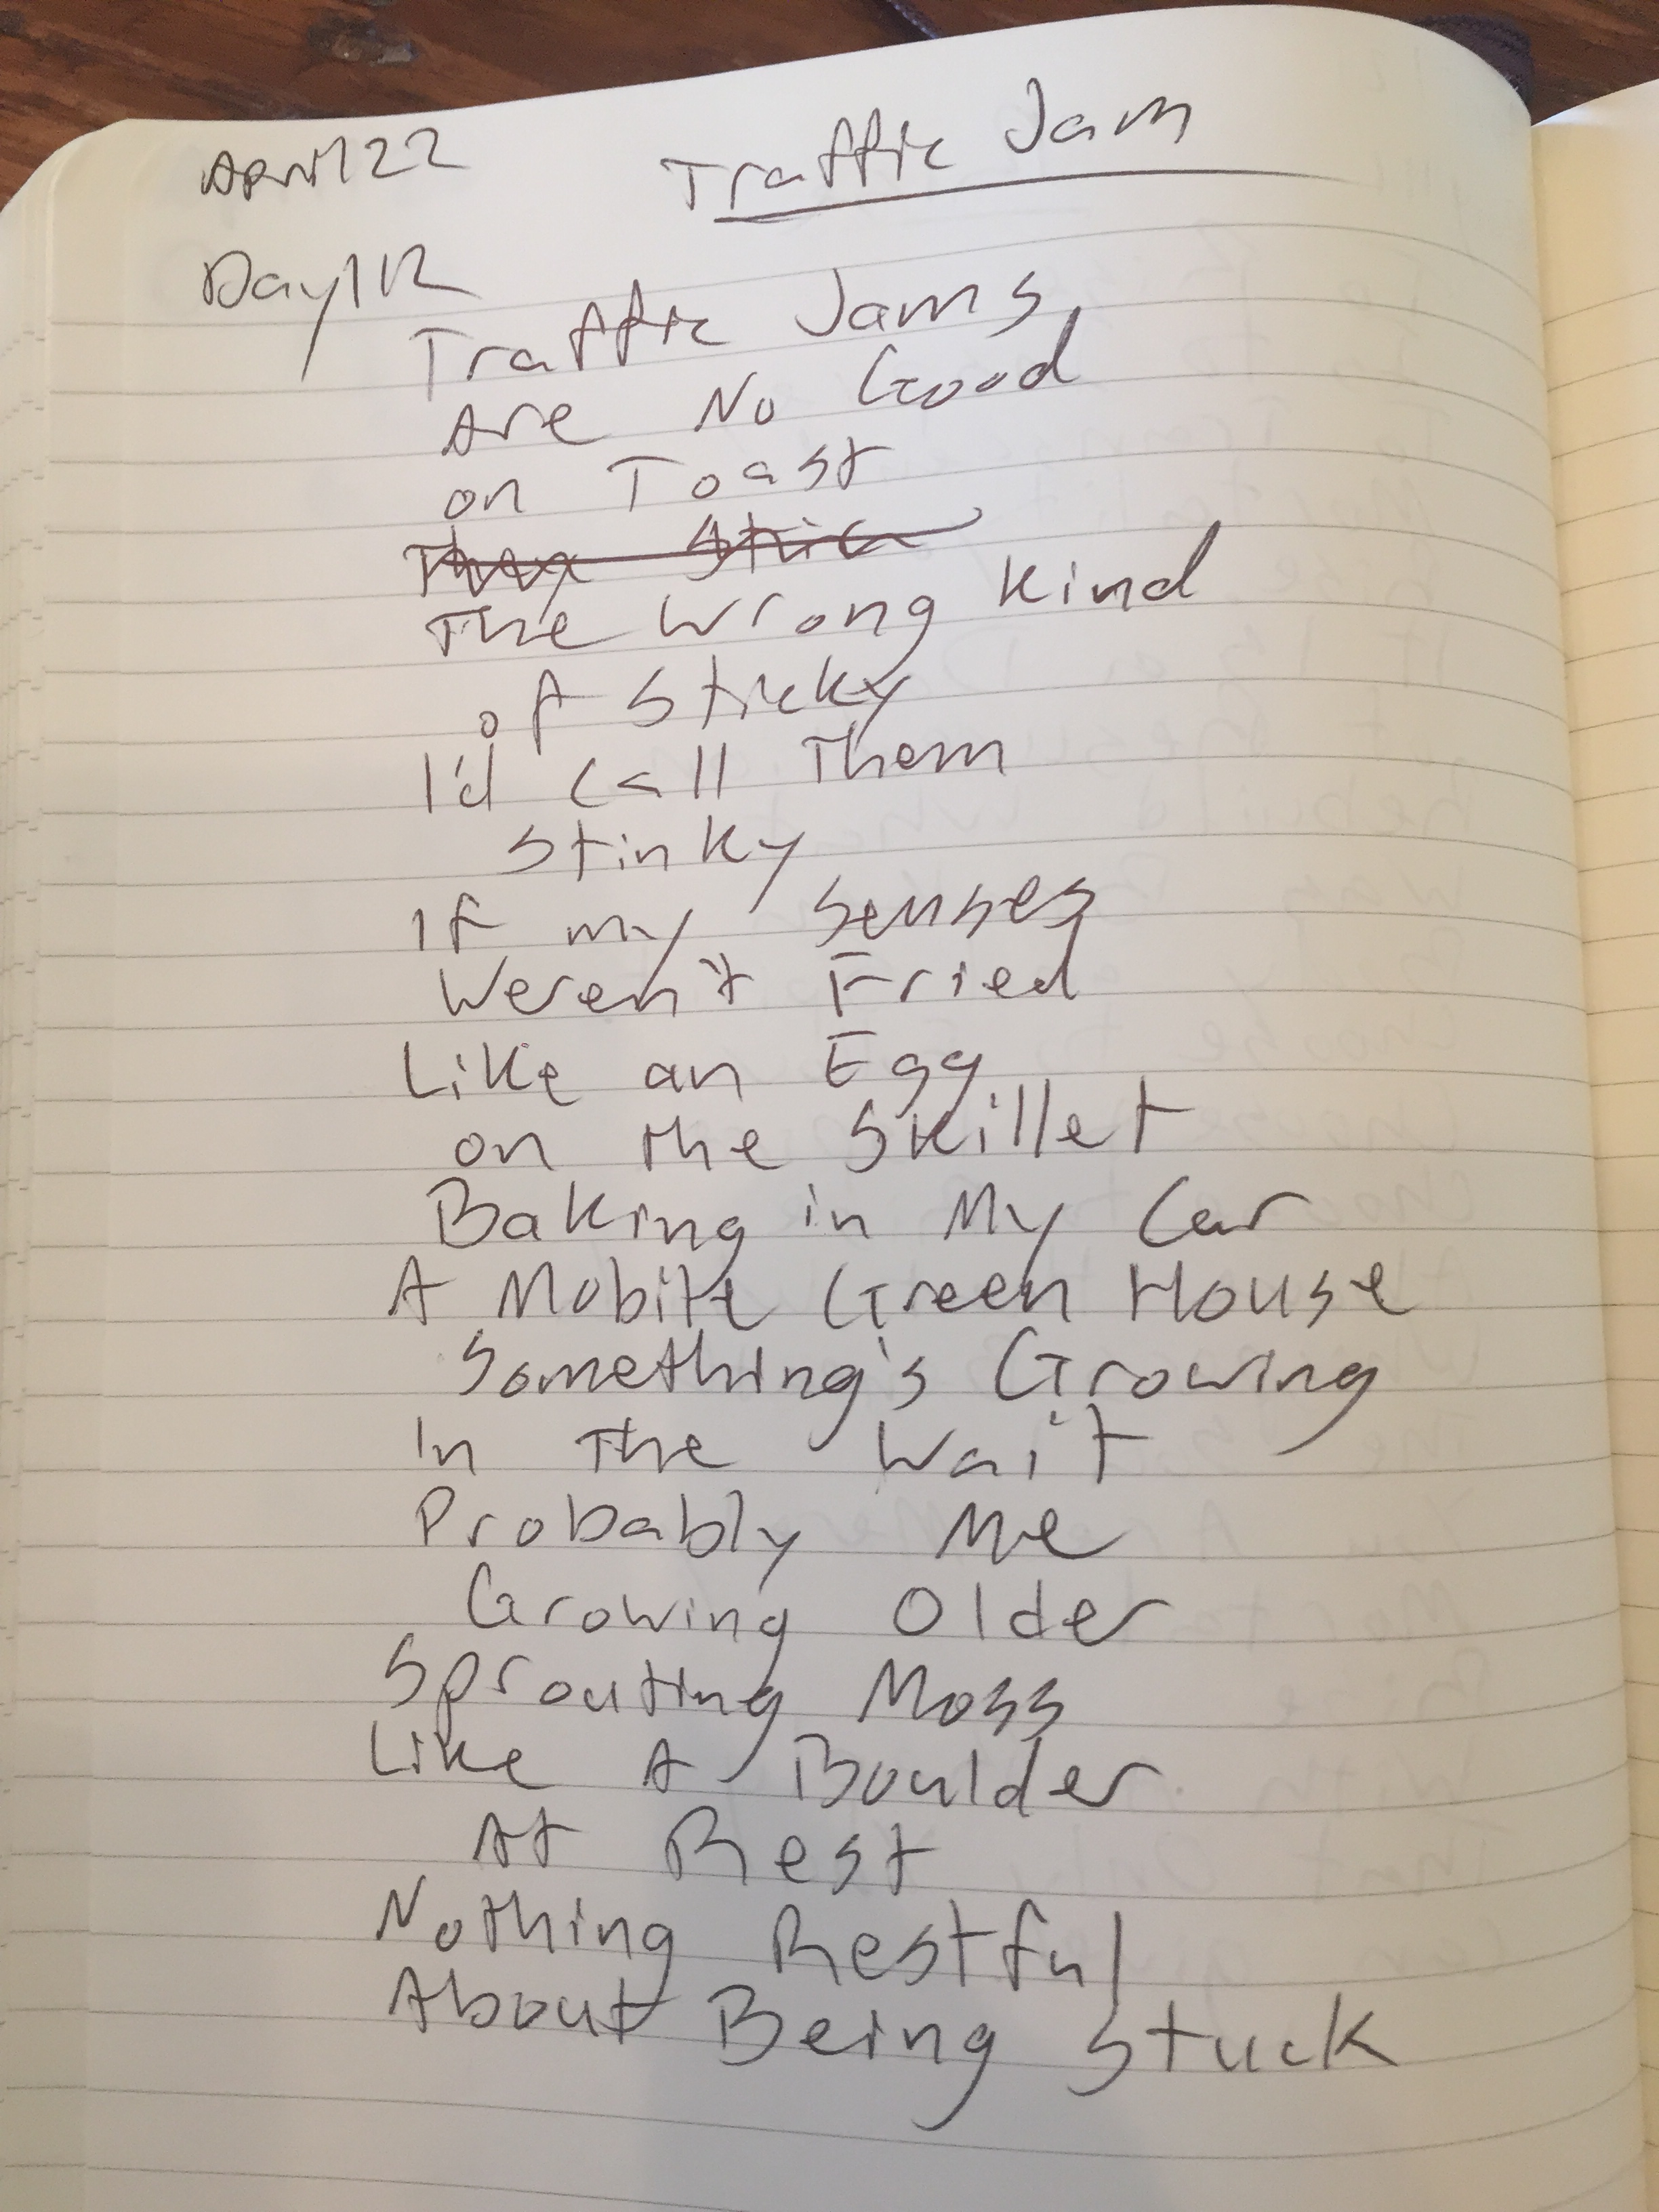 April 22 Traffic Jam
Day 112
Traffic Jams
Are No Good
on Toast
They Stick
The Wrong Kind
of Sticky
I'd Call Them
Stinky
If my senses
Weren't Fried
Like an Egg
on the Skillet
Baking in My Car
A Mobile Green House
Something's Growing
In The Wait
Probably Me
Growing Older
Sprouting Moss
Like A Boulder
At Rest
Nothing Restful
About Being Stuck